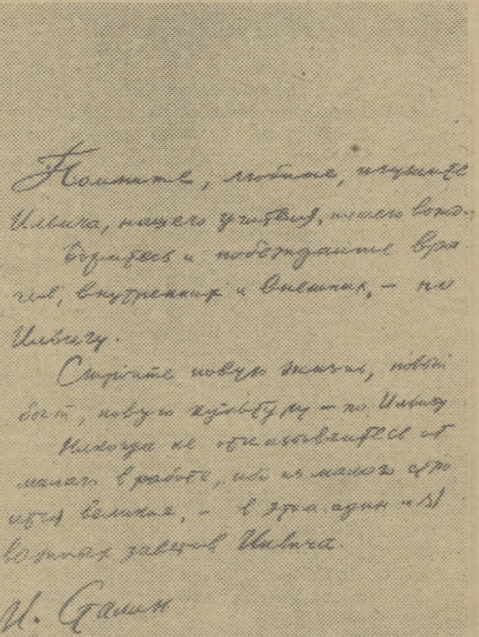 Помните, любите, изучайте
Ильича, нашего учителя, нашего вождя.
Боритесь и побеждайте вра-
гов, внутренних и внешних, – по
Ильичу.
Стройте новую жизнь, новый
быт, новую культуру – по Ильичу
Никогда не отказывайтесь от
малого в работе, ибо из малого стро
ится великое, – в этом один из
важных заветов Ильича.
И. Сталин